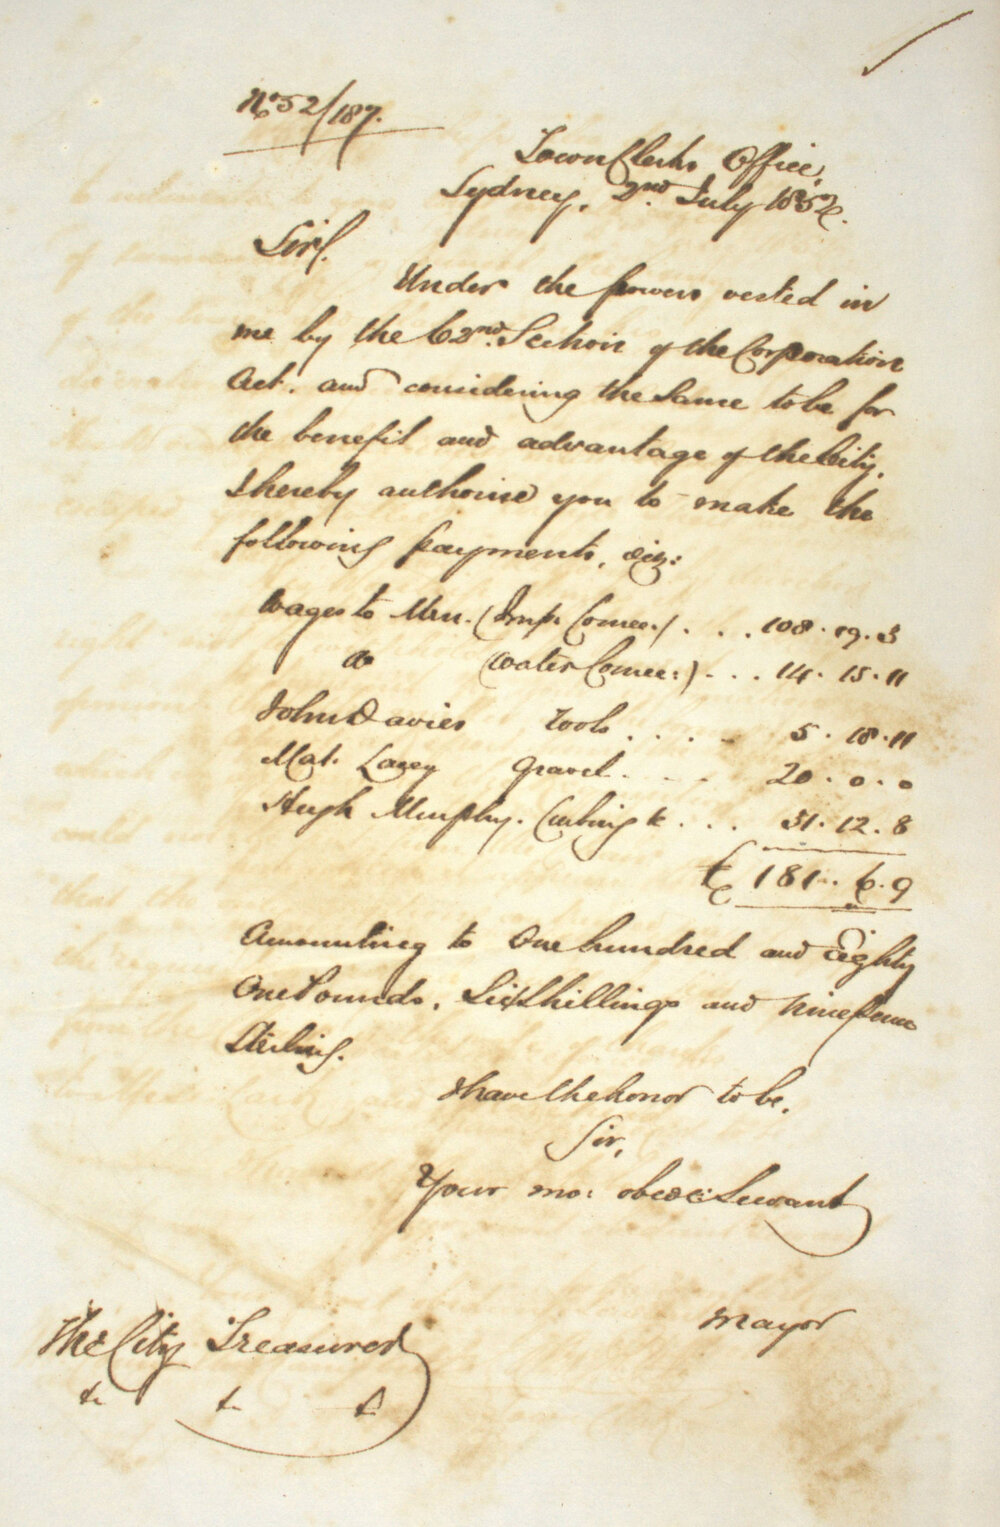 No 52/187.
Town Clerks Office,
Sydney, 2nd July 1852.
Sir,
Under the powers vested in
me by the 62nd Section of the Corporation
Act. and considering the same to be for
the benefit and advantage of the City,
I hereby authorise you to make the
following payments, viz:
Wages to Men. (Imp. Comee:) . . . 108. 19. 3
do (Water Comee:) . . . 14. 15. 11
John Davies Tools . . . . 5. 18. 11
Mat. Lacey Gravel. . . . 20. 0. 0
Hugh Murphy. Curbing &c . . . 31. 12. 8
£ 181. 6. 9
Amounting to One hundred and Eighty
One Pounds, Six Shillings and Nine pence
Sterling.
I have the honor to be,
Sir,
Your mo: obedt: Servant
Mayor
The City Treasurer
&c &c &c